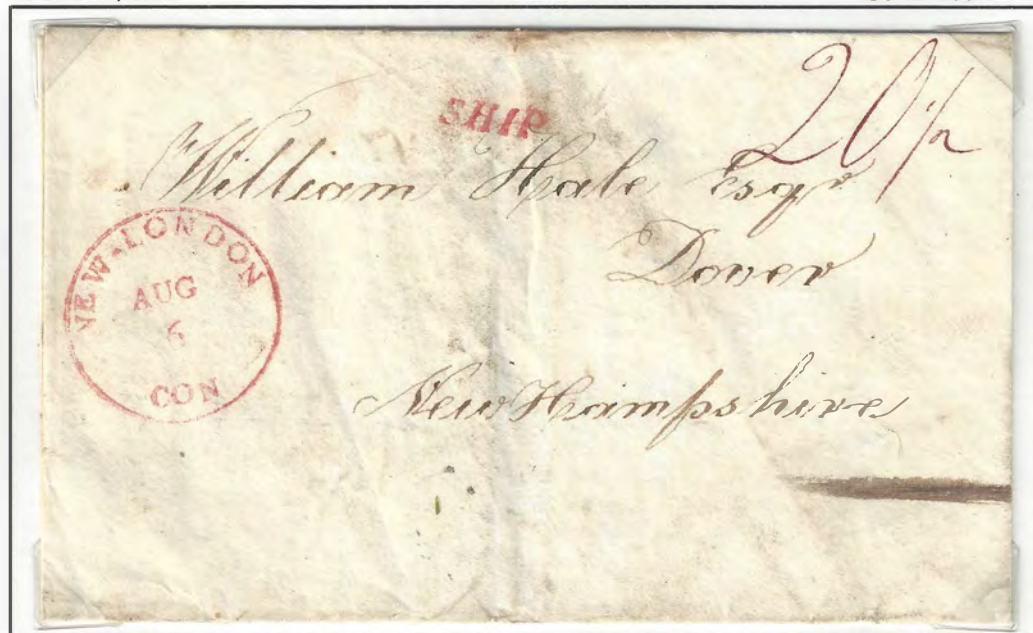 SHIP
20 1/2
William Hale Esqr
Dover
New Hampshire
NEW-LONDON
AUG
6
CON